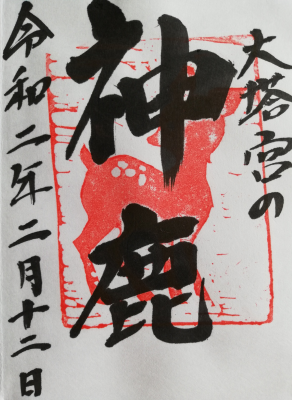 大塔宮の
神鹿
令和二年二月十二日